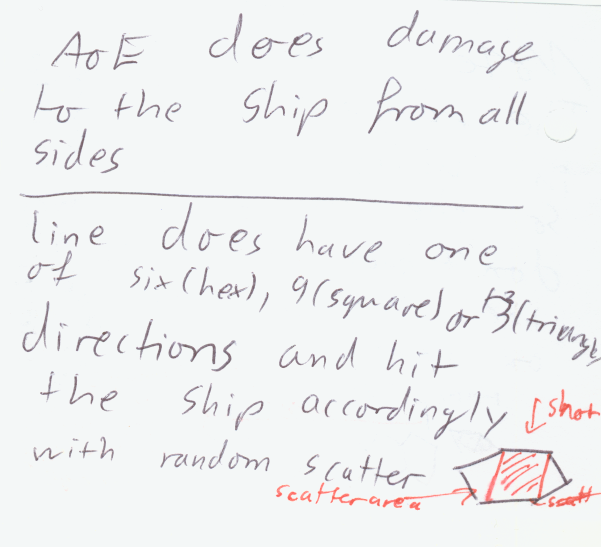 AoE does damage
to the ship from all
sides
line does have one
of six (hex), 9 (square) or 3 (triangle)
directions and hit
the ship accordingly
with random scatter
shot
scatter area